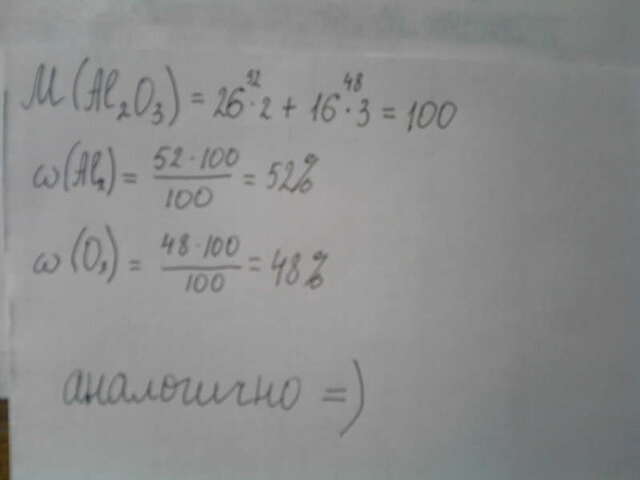 M(Al₂O₃) = 26⁵²·2 + 16⁴⁸·3 = 100
ω(Al₂) = 52·100/100 = 52%
ω(O₃) = 48·100/100 = 48%
аналогично =)